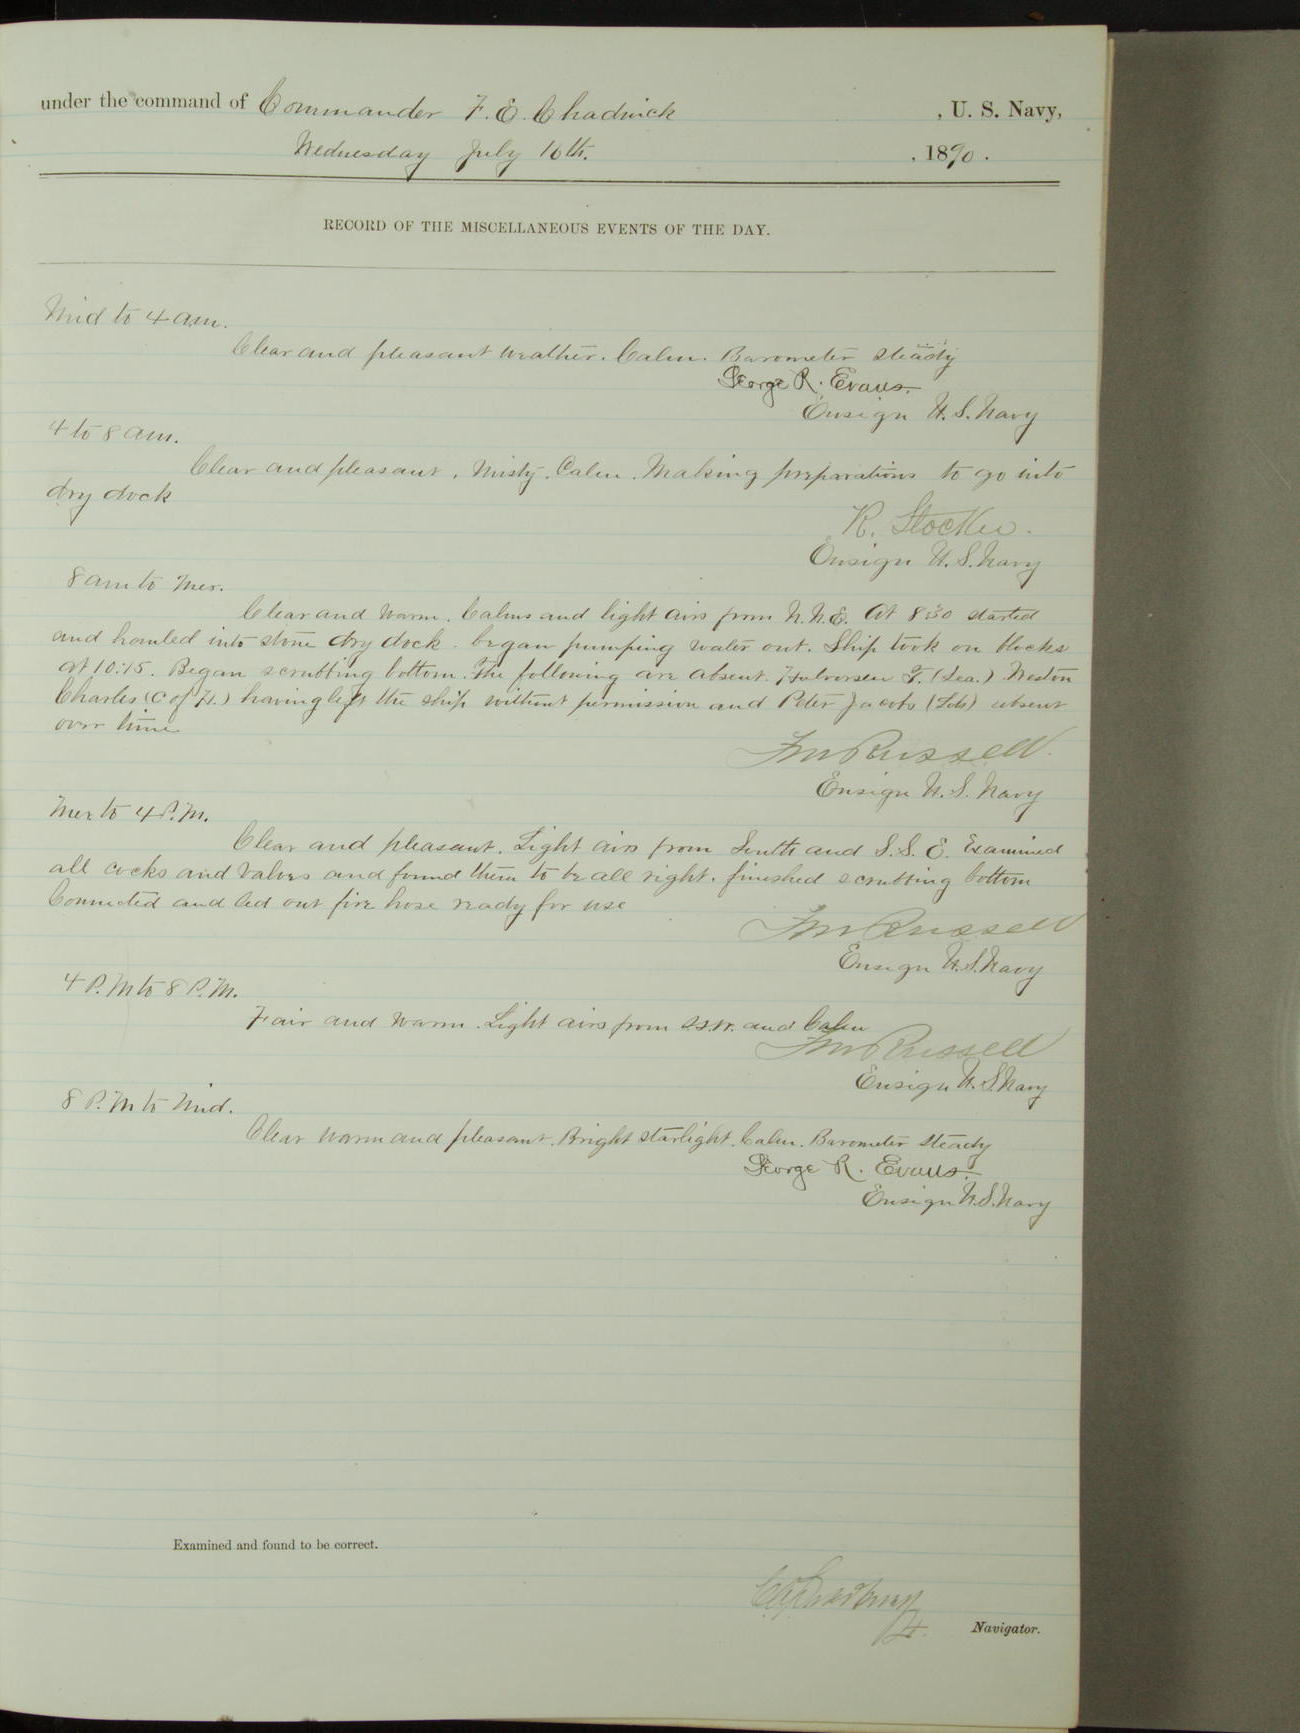 under the command of Commander F. E. Chadwick , U. S. Navy,
Wednesday July 16th. , 1890.
RECORD OF THE MISCELLANEOUS EVENTS OF THE DAY.
Mid to 4 a.m.
Clear and pleasant weather. Calm. Barometer steady
George R. Evans.
Ensign U. S. Navy
4 to 8 a.m.
Clear and pleasant. Misty. Calm. Making preparations to go into
dry dock
R. Stocker.
Ensign U. S. Navy
8 am to Mer.
Clear and warm. Calms and light airs from N.N.E. At 8:30 started
and hauled into stone dry dock. began pumping water out. Ship took on blocks
at 10:15. Began scrubbing bottom. The following are absent. Halvorsen T. (Sea.) Weston
Charles (C of H.) having left the ship without permission and Peter Jacobs absent
over time
Fm Russell.
Ensign U. S. Navy
Mer to 4 P.M.
Clear and pleasant. Light airs from South and S. S. E. Examined
all cocks and valves and found them to be all right. finished scrubbing bottom
Connected and led out fire hose ready for use
Fm Russell
Ensign U. S. Navy
4 P.M to 8 P.M.
Fair and warm. Light airs from S.S.W. and Calm
Fm Russell
Ensign U. S. Navy
8 P.M to Mid.
Clear warm and pleasant. Bright starlight. Calm. Barometer steady
George R. Evans.
Ensign U. S. Navy
Examined and found to be correct.
Navigator.